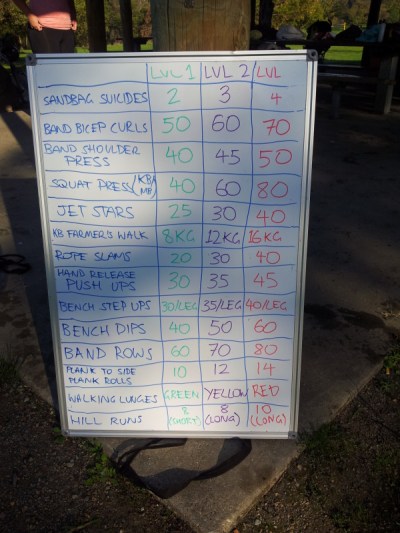 LVL 1 LVL 2 LVL
SANDBAG SUICIDES 2 3 4
BAND BICEP CURLS 50 60 70
BAND SHOULDER PRESS 40 45 50
SQUAT PRESS (KB/MB) 40 60 80
JET STARS 25 30 40
KB FARMER'S WALK 8KG 12KG 16KG
ROPE SLAMS 20 30 40
HAND RELEASE PUSH UPS 30 35 45
BENCH STEP UPS 30/LEG 35/LEG 40/LEG
BENCH DIPS 40 50 60
BAND ROWS 60 70 80
PLANK TO SIDE PLANK ROLLS 10 12 14
WALKING LUNGES GREEN YELLOW RED
HILL RUNS 8 (SHORT) 8 (LONG) 10 (LONG)